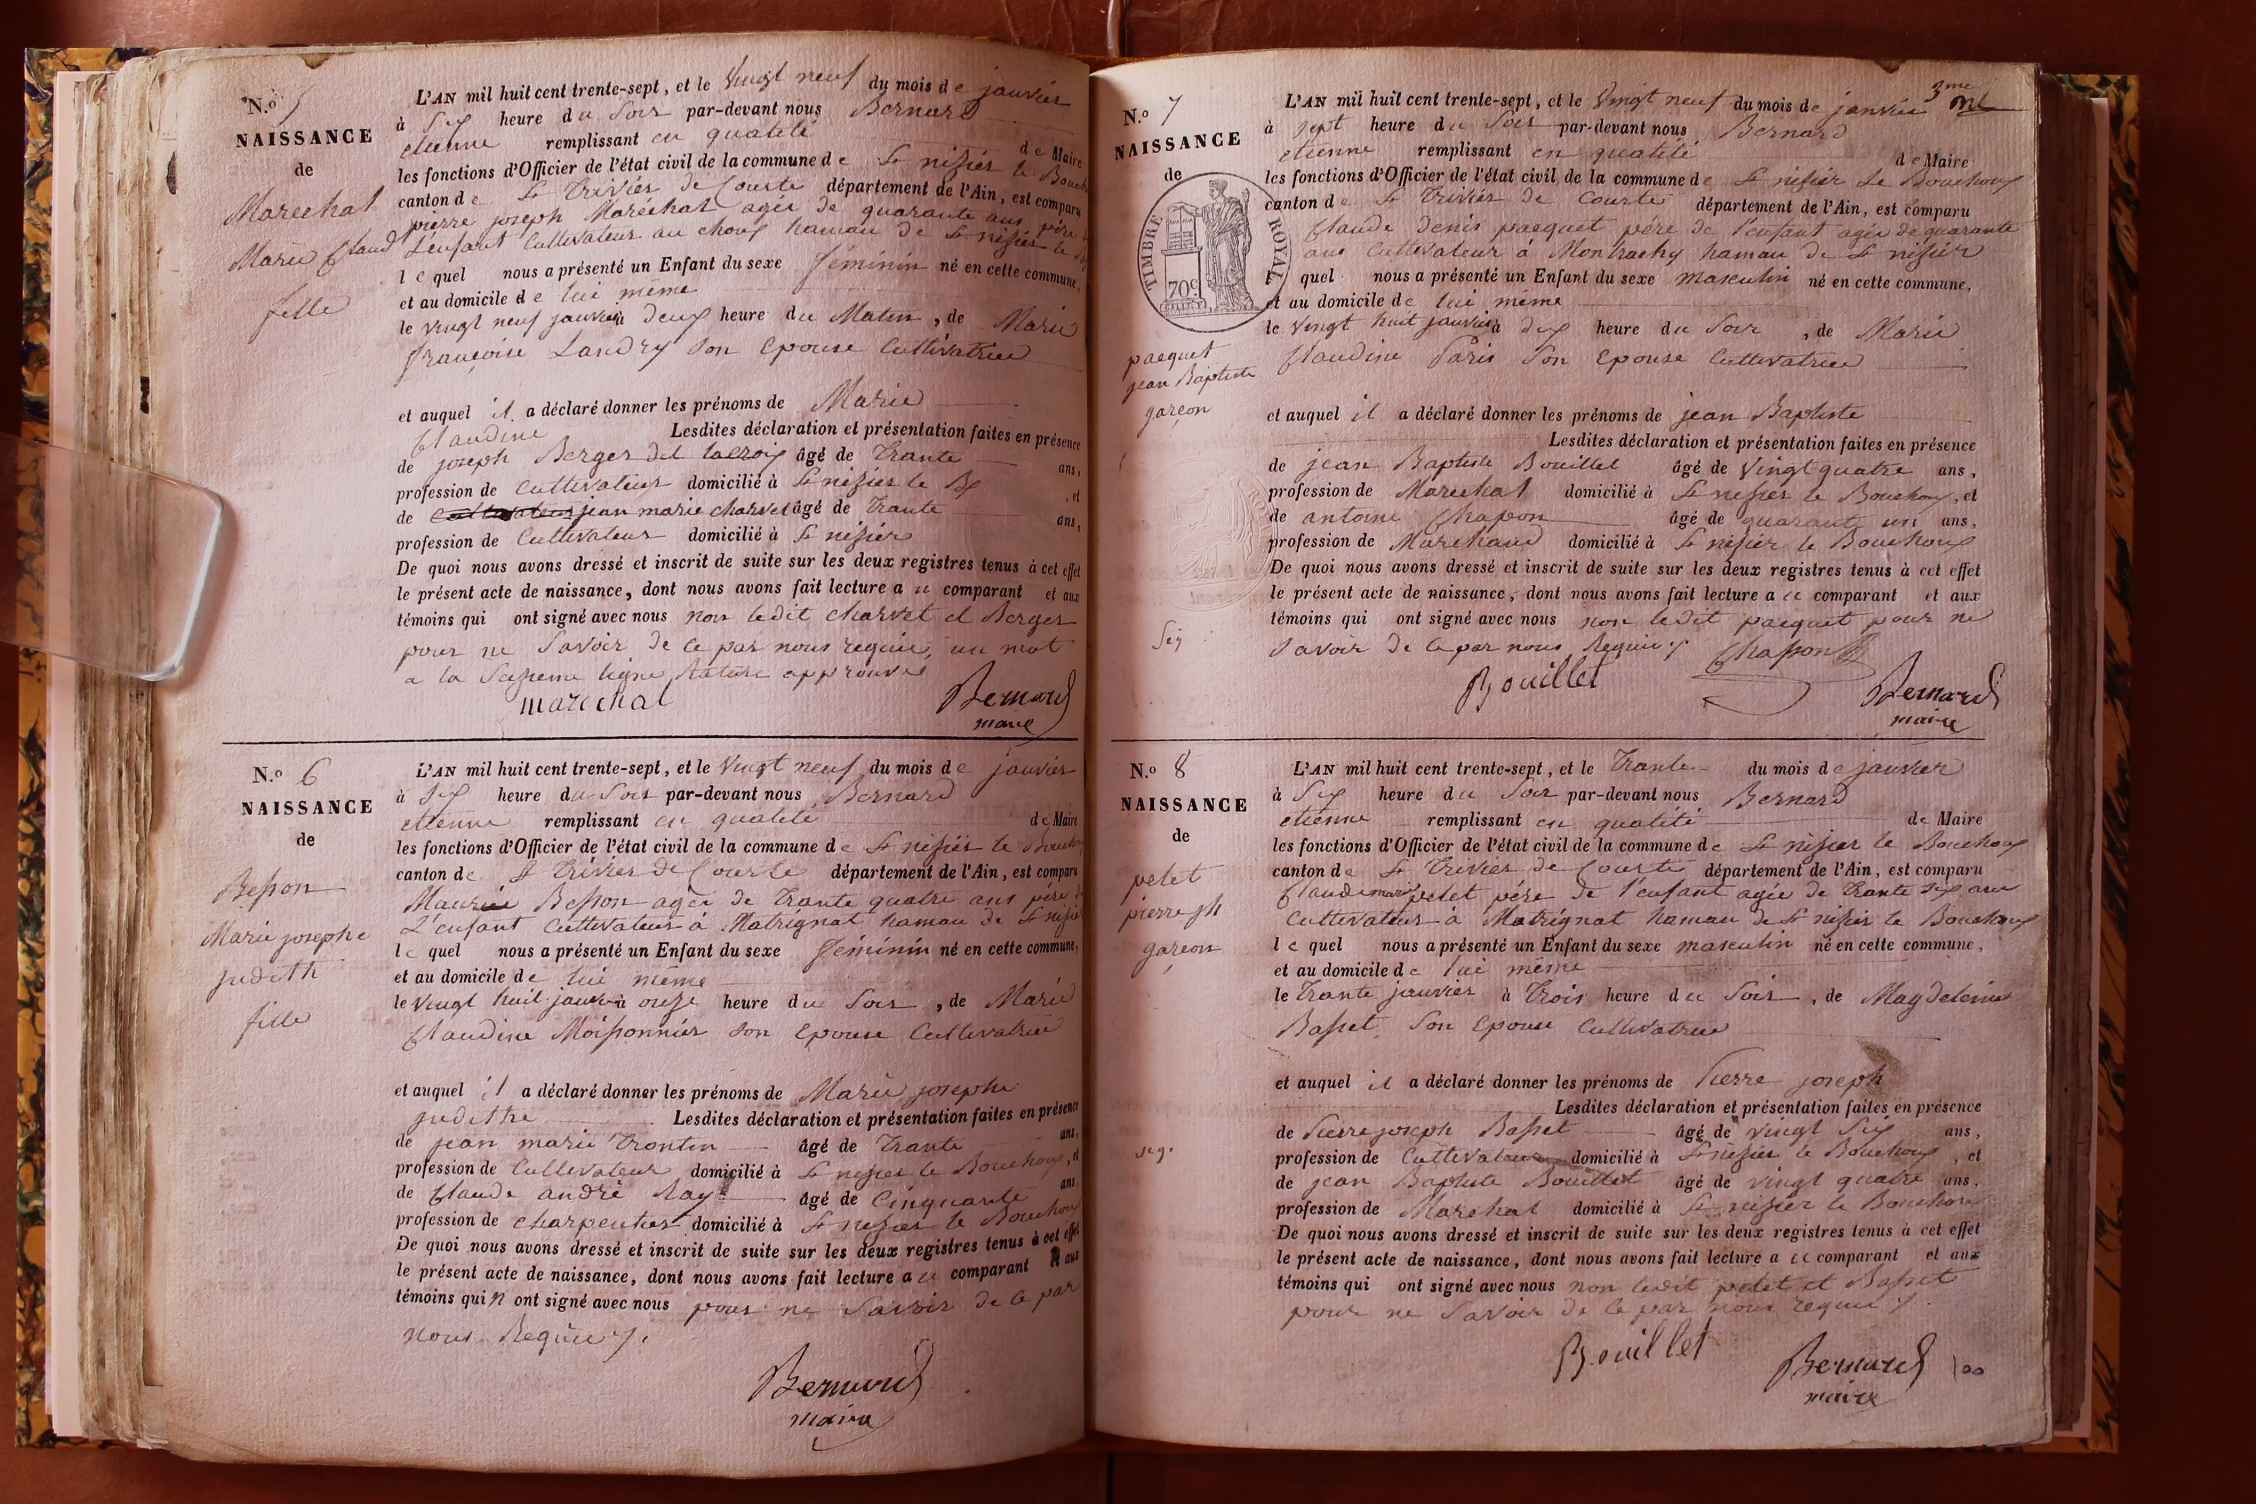 N.º 5
NAISSANCE
de
Maréchal
Marie Claud
fille
L'AN mil huit cent trente-sept, et le Vingt neuf du mois de janvier
à Six heure du Soir par-devant nous Bernard
etienne remplissant en qualité de Maire
les fonctions d'Officier de l'état civil de la commune de St nisier le Bouch
canton de St Trivier de Courte département de l'Ain, est comparu
pierre joseph Maréchal agée de quarante ans père
L'enfant Cultivateur au choux hamau de St nisier le
le quel nous a présenté un Enfant du sexe féminin né en cette commune,
et au domicile de lui même
le vingt neuf janvier à deux heure du Matin, de Marie
françoise Landry son epouse Cultivatrice
et auquel il a déclaré donner les prénoms de Marie
Claudine Lesdites déclaration et présentation faites en présence
de joseph Berger dit lacroix âgé de Trante ans,
profession de Cultivateur domicilié à St nisier le Bx, et
de jean marie charvet âgé de Trante ans,
profession de Cultivateur domicilié à St nisier
De quoi nous avons dressé et inscrit de suite sur les deux registres tenus à cet effet
le présent acte de naissance, dont nous avons fait lecture a u comparant et aux
témoins qui ont signé avec nous non ledit charvet et Berger
pour ne Savoir de ce par nous requie, un mot
a la ligne Rature approuvé
marechal
Bernard
maire
N.º 6
NAISSANCE
de
Besson
Marie josephe
judith
fille
L'AN mil huit cent trente-sept, et le Vingt neuf du mois de janvier
à Six heure du Soir par-devant nous Bernard
etienne remplissant en qualité de Maire
les fonctions d'Officier de l'état civil de la commune de St nisier le Bouchoux
canton de St Trivier de Courte département de l'Ain, est comparu
Besson agée de Trante quatre ans père
L'enfant Cultivateur à Matrignat hamau de St nisier
le quel nous a présenté un Enfant du sexe féminin né en cette commune,
et au domicile de lui même
le Vingt huit janvier à onze heure du Soir, de Marie
Claudine Moissonnier son epouse Cultivatrice
et auquel il a déclaré donner les prénoms de Marie josephe
judithe Lesdites déclaration et présentation faites en présence
de jean marie Trontin âgé de Trante ans,
profession de Cultivateur domicilié à St nisier le Bouchoux, et
de Claude andré Ray âgé de Cinquante ans
profession de Charpentier domicilié à St nisier le Bouchoux
De quoi nous avons dressé et inscrit de suite sur les deux registres tenus à cet effet
le présent acte de naissance, dont nous avons fait lecture a u comparant et aux
témoins qui n ont signé avec nous pour ne Savoir de ce par
nous Requie
Bernard
maire
3me
N.º 7
NAISSANCE
de
TIMBRE ROYAL
70c
pacquet
jean Baptiste
garçon
L'AN mil huit cent trente-sept, et le Vingt neuf du mois de janvier
à sept heure du Soir par-devant nous Bernard
etienne remplissant en qualité de Maire
les fonctions d'Officier de l'état civil de la commune de St nisier Le Bouchoux
canton de St Trivier de Courte département de l'Ain, est comparu
Claude denis pacquet père de l'enfant agée de quarante
ans Cultivateur à Montrachy hamau de St nisier
quel nous a présenté un Enfant du sexe masculin né en cette commune,
et au domicile de lui même
le Vingt huit janvier à dix heure du Soir, de Marie
Claudine Paris Son Epouse Cultivatrice
et auquel il a déclaré donner les prénoms de jean Baptiste
Lesdites déclaration et présentation faites en présence
de jean Baptiste Bouillet âgé de Vingt quatre ans,
profession de Marechal domicilié à St nisier le Bouchoux, et
de antoine Chapon âgé de quarante un ans,
profession de Marchand domicilié à St nisier le Bouchoux
De quoi nous avons dressé et inscrit de suite sur les deux registres tenus à cet effet
le présent acte de naissance, dont nous avons fait lecture a u comparant et aux
témoins qui ont signé avec nous non ledit pacquet pour ne
Savoir de ce par nous Requie
Chapon
Bouillet
Bernard
maire
N.º 8
NAISSANCE
de
pelet
pierre jh
garçon
L'AN mil huit cent trente-sept, et le Trante du mois de janvier
à Six heure du Soir par-devant nous Bernard
etienne remplissant en qualité de Maire
les fonctions d'Officier de l'état civil de la commune de St nisier le Bouchoux
canton de St Trivier de Courte département de l'Ain, est comparu
Claude marie pelet père de l'enfant agée de Trante Six ans
Cultivateur à Matrignat hamau de St nisier le Bouchoux
le quel nous a présenté un Enfant du sexe masculin né en cette commune,
et au domicile de lui même
le Trante janvier à Trois heure du Soir, de Magdeleine
Basset Son Epouse Cultivatrice
et auquel il a déclaré donner les prénoms de Pierre joseph
Lesdites déclaration et présentation faites en présence
de Pierre joseph Basset âgé de vingt Six ans,
profession de Cultivateur domicilié à St nisier le Bouchoux, et
de jean Baptiste Bouillet âgé de vingt quatre ans,
profession de Marchal domicilié à St nisier le Bouchoux
De quoi nous avons dressé et inscrit de suite sur les deux registres tenus à cet effet
le présent acte de naissance, dont nous avons fait lecture a u comparant et aux
témoins qui ont signé avec nous non ledit pelet et Basset
pour ne Savoir de ce par nous requie
Bouillet
Bernard
maire